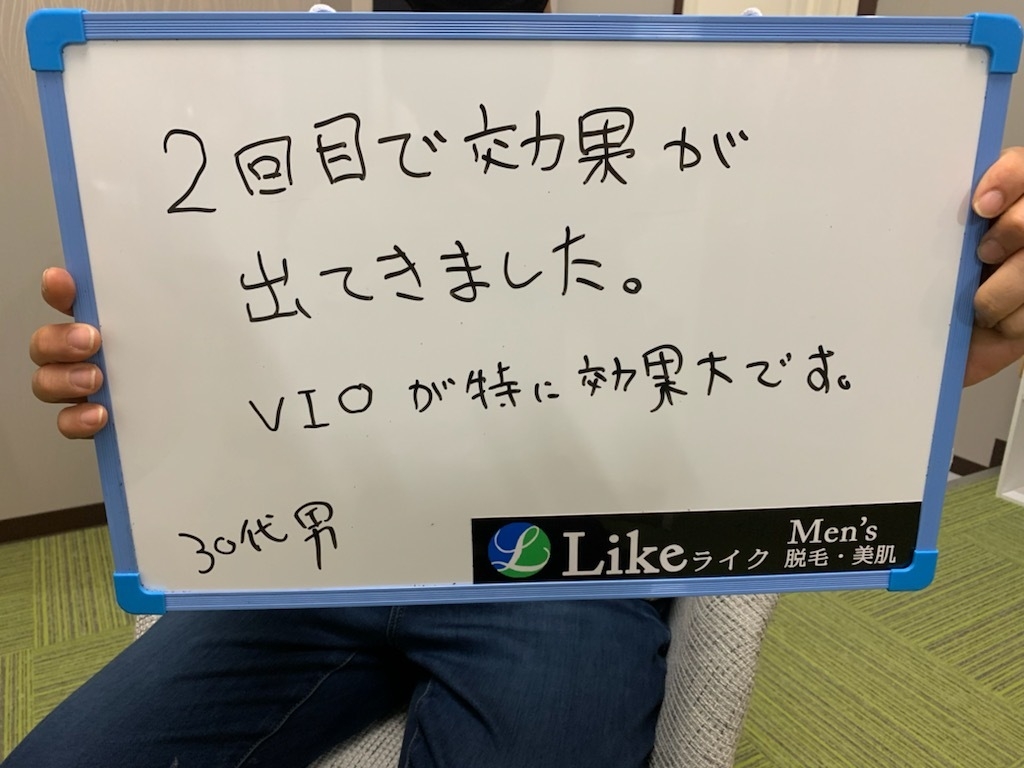 2回目で効果が
出てきました。
VIOが特に効果大です。
30代男
L Likeライク Men's 脱毛・美肌